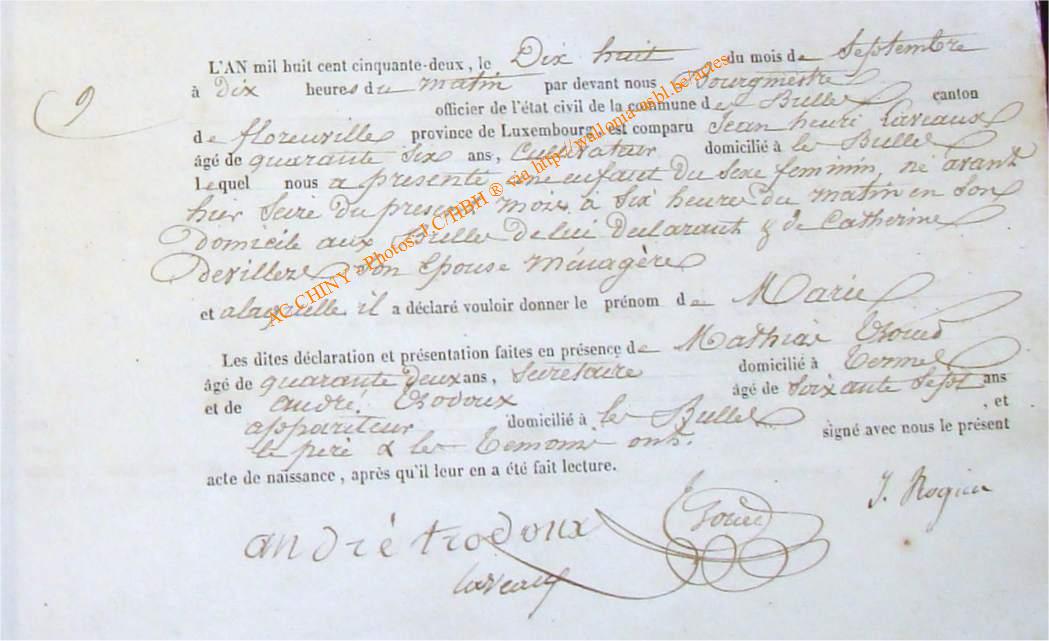 9
L'AN mil huit cent cinquante-deux, le Dix huit du mois de Septembre
à Dix heures du matin par devant nous Bourgmestre
officier de l'état civil de la commune des Bulles canton
de florenville province de Luxembourg, est comparu Jean henri Laveaux
âgé de quarante Six ans, Cultivateur domicilié à les Bulles
Lequel nous a présenté un enfant du sexe feminin, né avant
hier Seize du present mois à Six heures du matin en Son
Domicile aux Bulles de lui Declarant & de Catherine
Devillez Son Epouse ménagère
et a laquelle il a déclaré vouloir donner le prénom de Marie
Les dites déclaration et présentation faites en présence de Mathias
âgé de quarante Deux ans, Secretaire domicilié à Termes
et de andré Trodoux âgé de Soixante Sept ans
appariteur domicilié à les Bulles , et
le père & les Temoins ont signé avec nous le présent
acte de naissance, après qu'il leur en a été fait lecture.
J. Rogier
andré trodoux
laveaux
AC CHINY - Photos J.C/HBH ® via http://wallonia-asbl.be/actes